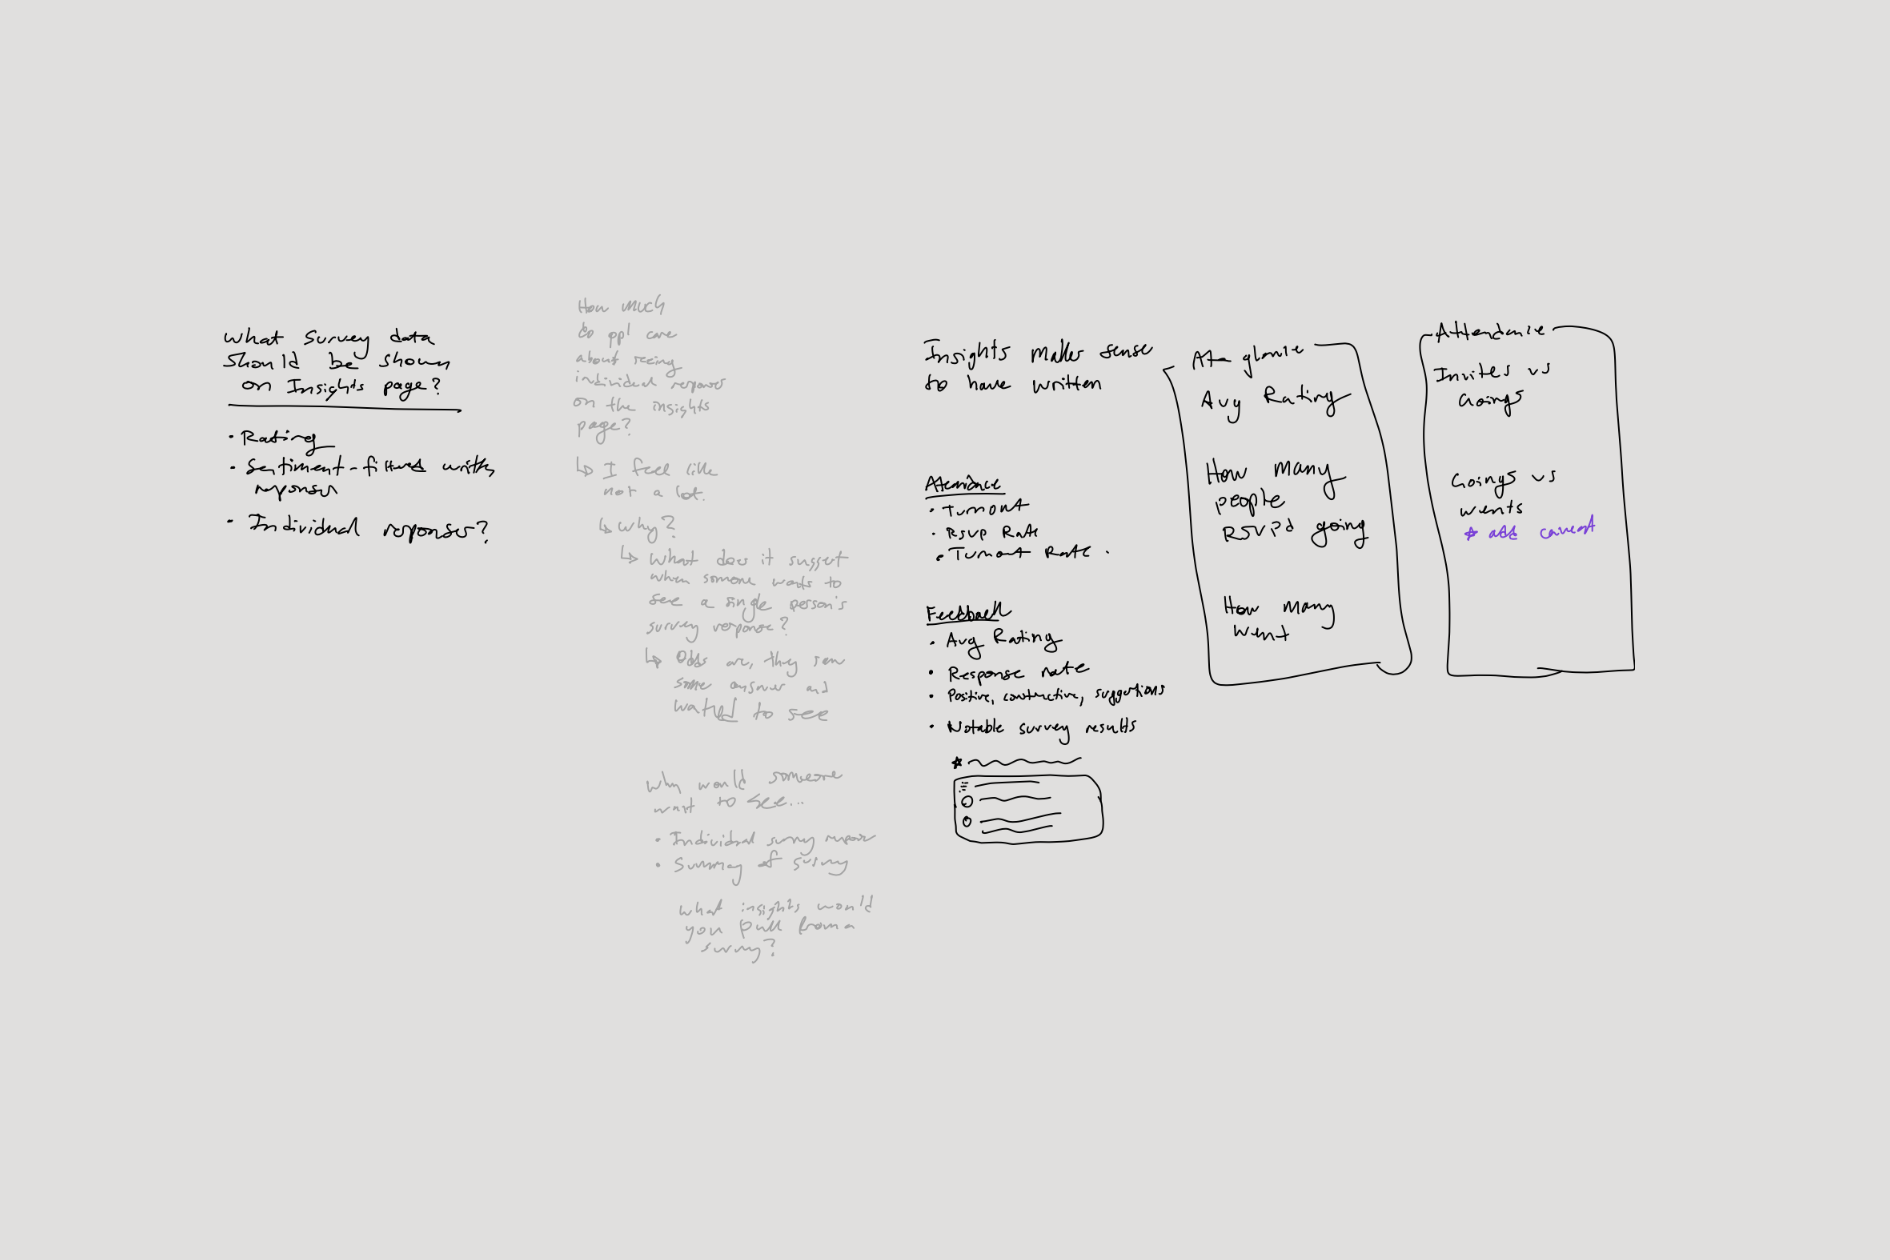 What Survey data
should be shown
on Insights page?
• Rating
• Sentiment-filtered written
responses
• Individual responses?
How much
do ppl care
about seeing
individual responses
on the insights
page?
↳ I feel like
not a lot.
↳ Why?
↳ What does it suggest
when someone wants to
see a single person's
survey response?
↳ Odds are, they saw
some answer and
wanted to see
Why would someone
want to see...
• Individual survey response
• Summary of survey
What insights would
you pull from a
survey?
Insights makes sense
to have written
Attendance
• Turnout
• RSVP Rate
• Turnout Rate.
Feedback
• Avg Rating
• Response rate
• Positive, constructive, suggestions
• Notable survey results
At a glance
Avg Rating
How many
people
RSVP'd going
How many
went
Attendance
Invites vs
Goings
Goings vs
wents
* add caveat